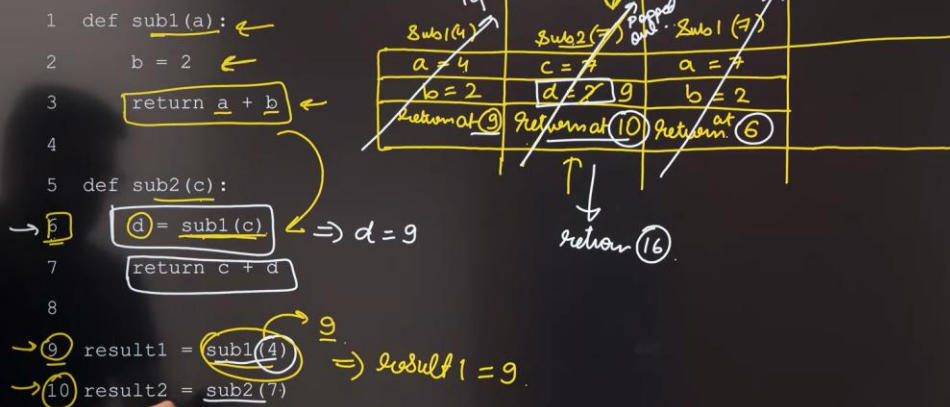 1 def sub1(a):
2 b = 2
3 return a + b
4
5 def sub2(c):
6 d = sub1(c) ⇒ d = 9
7 return c + d
8
9 result1 = sub1(4) 9 ⇒ result1 = 9.
10 result2 = sub2(7)
Sub1(4) Sub2(7) popped out. Sub1(7)
a = 4 c = 7 a = 7
b = 2 d = ? 9 b = 2
return at 9 return at 10 return at 6
return 16.